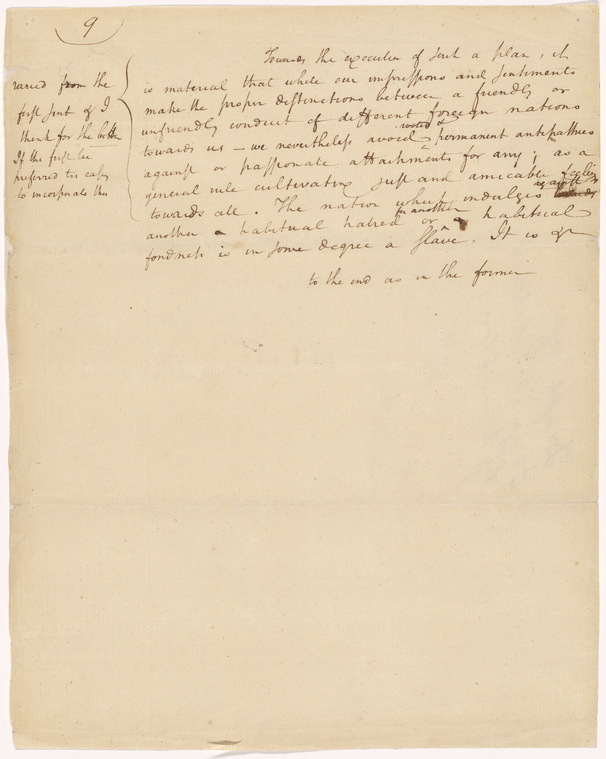 9
varied from the
first sent & I
think for the better
If the first be
preferred tis easy
to incorporate this
Towards the execution of such a plan, it
is material that while our impressions and sentiments
make the proper distinctions between a friendly or
unfriendly conduct of different foreign nations
towards us – we nevertheless avoid rooted & permanent antipathies
against or passionate attachments for any; in as a
general rule cultivating just and amicable feelings
towards all. The nation which indulges against
another a habitual hatred or for another a habitual
fondness is in some degree a slave. It is &
to the end as in the former